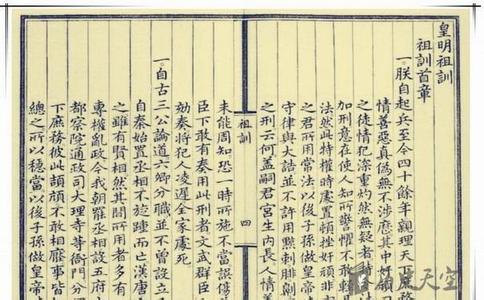 皇明祖訓
祖訓首章
一朕自起兵至今四十餘年親理天下庶務
情善惡真偽無不涉歷其中奸
之徒情犯深重灼然無疑者特
加刑意在使人知所警懼不敢輕
法然此特權時處置頓挫奸頑非
之君所用常法以後子孫做皇帝
守律與大誥並不許用黥刺剕劓
之刑云何蓋嗣君宮生內長人情善
祖訓
四
未能周知恐一時所施不當誤傷
臣下敢有奏用此刑者文武群臣
劾奏將犯人凌遲全家處死
一自古三公論道六卿分職並不曾設立
自秦始置丞相不旋踵而亡漢唐
之雖有賢相然其間所用者多有
專權亂政今我朝罷丞相設五府
都察院通政司大理寺等衙門分
下庶務彼此頡頏不敢相壓事皆
總之所以穩當以後子孫做皇帝
天空